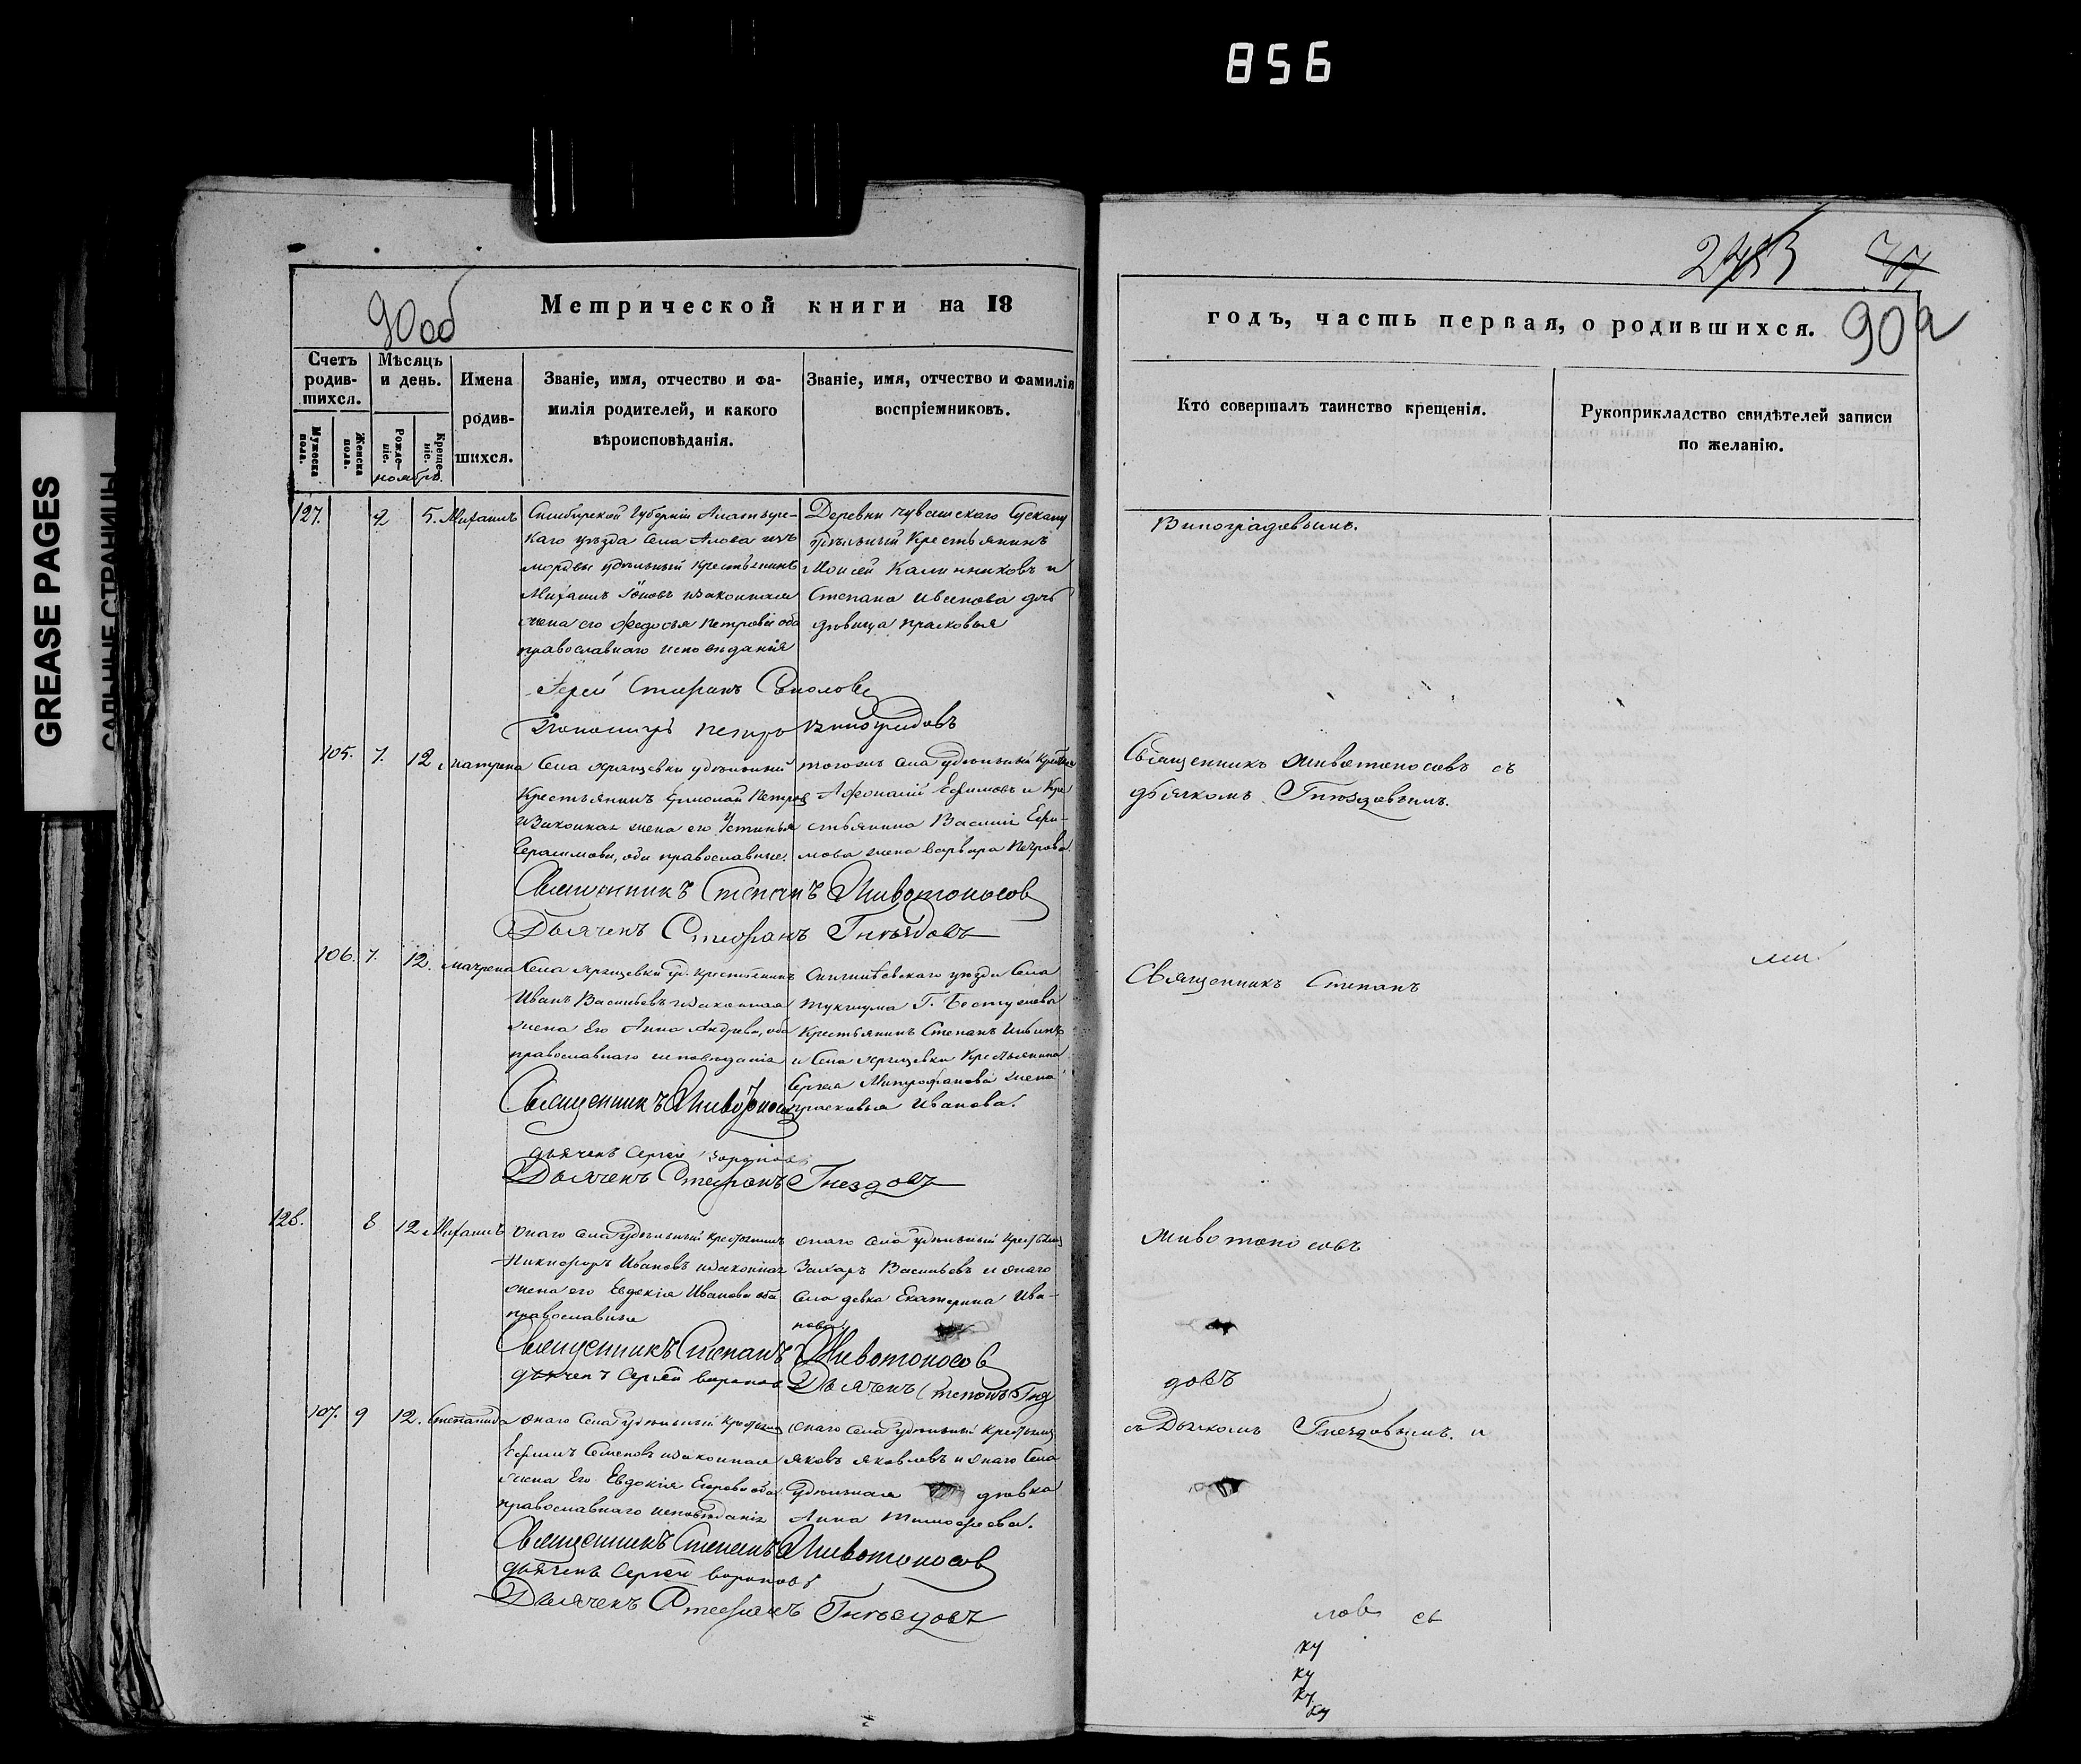 856
GREASE PAGES
САЛЬНЫЕ СТРАНИЦЫ
90об
Метрической книги на 18
Счетъ родив-шихся.
Мужеска пола.
Женска пола.
Мѣсяцъ и день.
Рожде-ніе.
Креще-ніе.
ноябрь.
Имена
родив-
шихся.
Званіе, имя, отчество и фа-
милія родителей, и какого
вѣроисповѣданія.
Званіе, имя, отчество и фамилія
воспріемниковъ.
127. 2 5. Михаилъ
Симбирской Губерніи Алатырс-
каго уѣзда Села Алова изъ
мордвы удѣльный крестьянинъ
Михаилъ Іоновъ и законная
жена его Федосья Петрова оба
православнаго исповѣданія
Деревни чувашскаго
удѣльный Крестьянинъ
Моисей Калинниковъ и
Степана Иванова дочь
дѣвица прасковья
Іерей Стефанъ Соколовъ
Пономарь петръ виноградовъ
105. 7. 12 Матрена
Села удѣльный
Крестьянинъ Петровъ
и Законная жена его Устинья
Герасимова, оба православные.
тогожъ села удѣльный
Афонасій Ефимовъ и Кре
стьянина Василія Ефи-
мова жена варвара Петрова.
Священникъ Степанъ Животоносовъ
Дьячекъ Стефанъ Гнѣздовъ
106. 7. 12. Матрена
Села уд. крестьянинъ
Иванъ Васильевъ и законная
жена Его Анна Андреева, оба
православнаго исповѣданія
уѣзда Села
Г.
Крестьянинъ Степанъ Ильинъ
и Села Крестьянина
Сергея Митрофанова жена
прасковья Иванова.
Священникъ Животоносовъ
дьячекъ Сергей
Дьячекъ Стефанъ Гнездовъ
128. 8 12 Михаилъ
онаго села удѣльный крестьянинъ
Никифоръ Ивановъ и законная
жена его Евдокія Иванова оба
православные
онаго села удѣльный
Захаръ Васильевъ и онаго
села девка Екатерина Ива-
нова.
Священникъ Степанъ Животоносовъ
дьячекъ Сергей вороновъ Дьячекъ Гнѣз
107. 9 12. Степанида
онаго Села удѣльный
Ефимъ Семеновъ и законная
жена Его Евдокія Егорова оба
православнаго исповѣданія
онаго Села удѣльный
яковъ яковлевъ и онаго Села
удѣльная дѣвка
Анна Тимофеева.
Священникъ Степанъ Животоносовъ
дьячекъ Сергей вороновъ
Дьячекъ Стефанъ Гнѣздовъ
90а
годъ, часть первая, о родившихся.
Кто совершалъ таинство крещенія.
Рукоприкладство свидѣтелей записи
по желанію.
Виноградовымъ.
Священникъ Животоносовъ съ
дьячкомъ Гнѣздовымъ.
Священникъ Степанъ
Животоносовъ
довъ
съ Дьячкомъ Гнездовымъ. и
съ
ку
ку
ку
ку